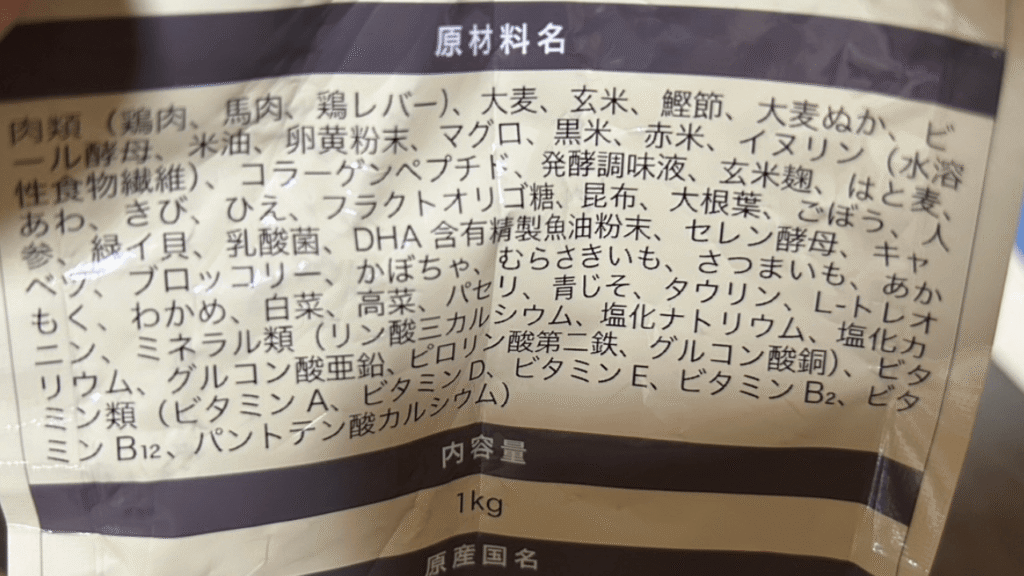 原材料名
肉類（鶏肉、馬肉、鶏レバー）、大麦、玄米、鰹節、大麦ぬか、ビ
ール酵母、米油、卵黄粉末、マグロ、黒米、赤米、イヌリン（水溶
性食物繊維）、コラーゲンペプチド、発酵調味液、玄米麹、はと麦、
あわ、きび、ひえ、フラクトオリゴ糖、昆布、大根葉、ごぼう、人
参、緑イ貝、乳酸菌、DHA 含有精製魚油粉末、セレン酵母、キャ
ベツ、ブロッコリー、かぼちゃ、むらさきいも、さつまいも、あか
もく、わかめ、白菜、高菜、パセリ、青じそ、タウリン、L-トレオ
ニン、ミネラル類（リン酸三カルシウム、塩化ナトリウム、塩化カ
リウム、グルコン酸亜鉛、ピロリン酸第二鉄、グルコン酸銅）、ビタ
ミン類（ビタミン A、ビタミン D、ビタミン E、ビタミン B₂、ビタ
ミン B₁₂、パントテン酸カルシウム）
内容量
1kg
原産国名